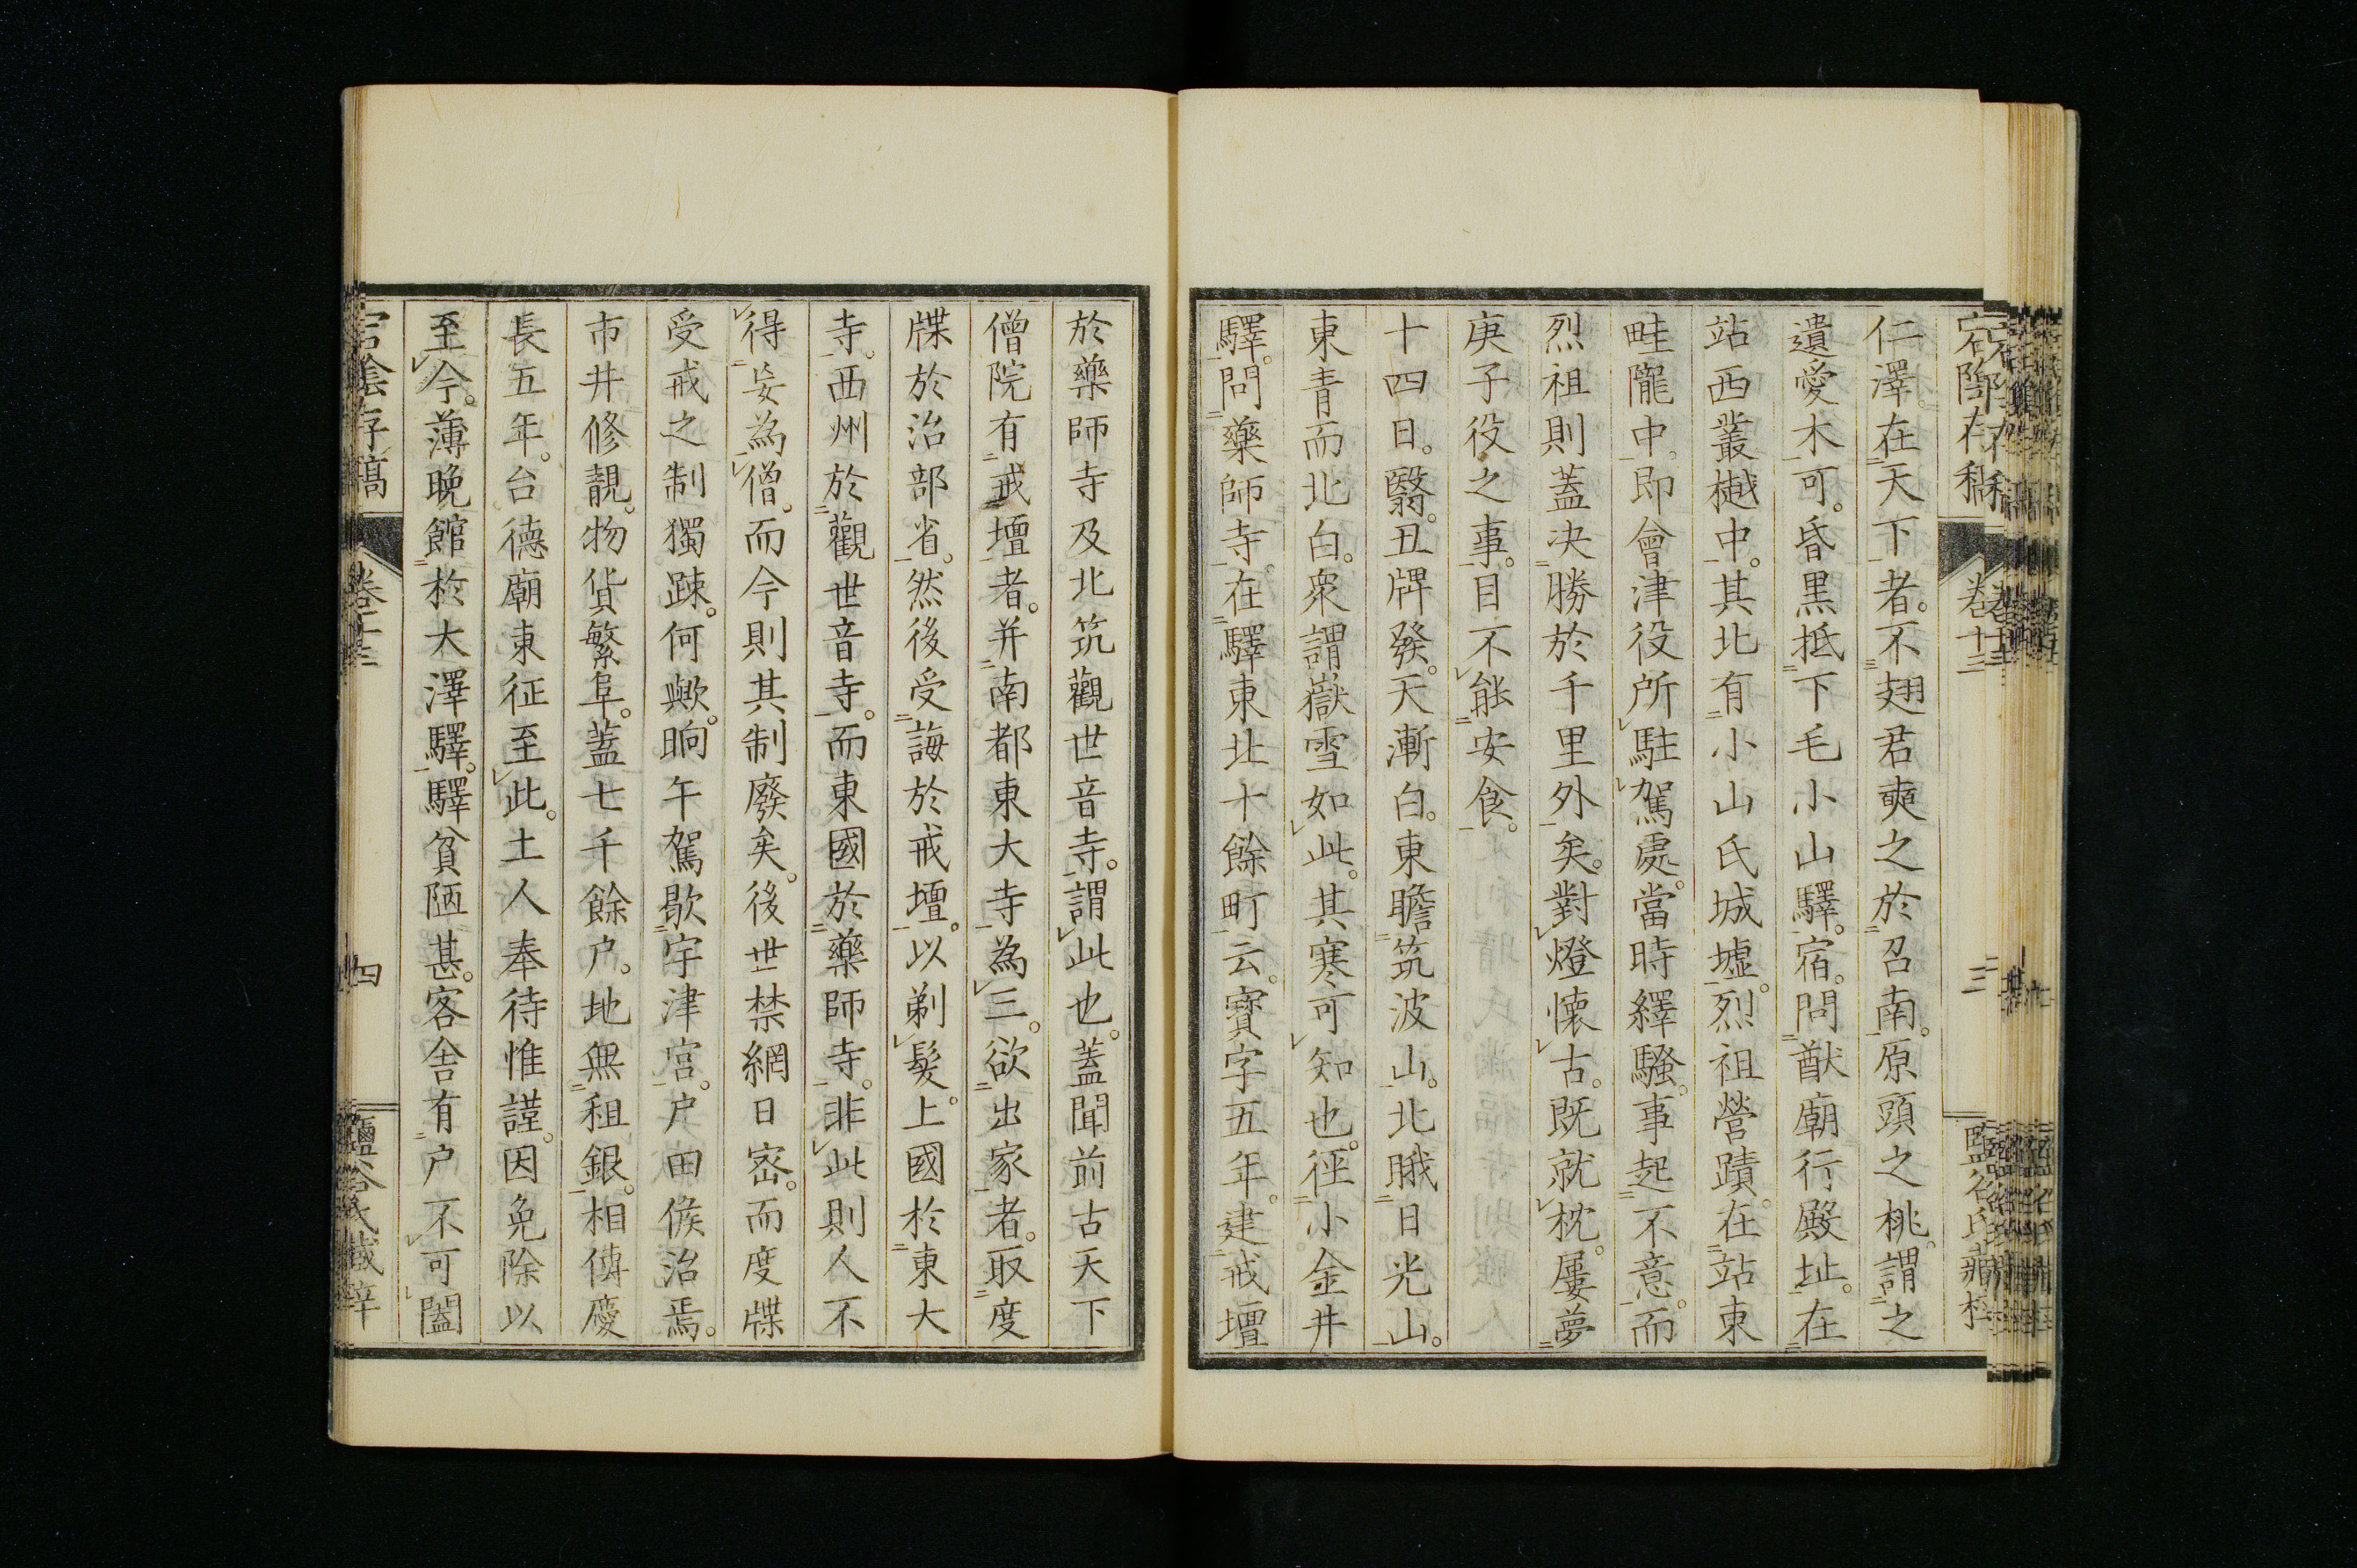 仁澤。在天下者。不翅君奭之於召南。原頭之桃。謂之
遺愛木可。昏黒抵下毛小山驛。宿。問猷廟行殿址。在
站西叢樾中。其北有小山氏城墟。烈祖營蹟。在站東
畦隴中。即會津役所駐駕處。當時繹騷。事起不意。而
烈祖則蓋决勝於千里外矣。對燈懷古。既就枕。屢夢
庚子役之事。目不能安食。
十四日。翳。丑牌發。天漸白。東瞻筑波山。北睋日光山。
東青而北白。衆謂嶽雪如此。其寒可知也。徑小金井
驛。問藥師寺。在驛東北十餘町云。寳字五年。建戒壇
於藥師寺及北筑觀世音寺。謂此也。蓋聞前古天下
僧院有戒壇者。并南都東大寺為三。欲出家者。取度
牒於治部省。然後受誨於戒壇。以剃髮。上國於東大
寺。西州於觀世音寺。而東國於藥師寺。非此則人不
得妄為僧。而今則其制廢矣。後世禁網日宻。而度牒
受戒之制獨踈。何歟。晌午駕歇宇津宮。户田侯治焉。
市井修靚。物貨繁阜。蓋七千餘户。地無租銀。相傳慶
長五年。台德廟東征至此。土人奉待惟謹。因免除以
至今。薄晩館於大澤驛。驛貧陋甚。客舎有户不可闔
宕陰存稿
卷十三
四